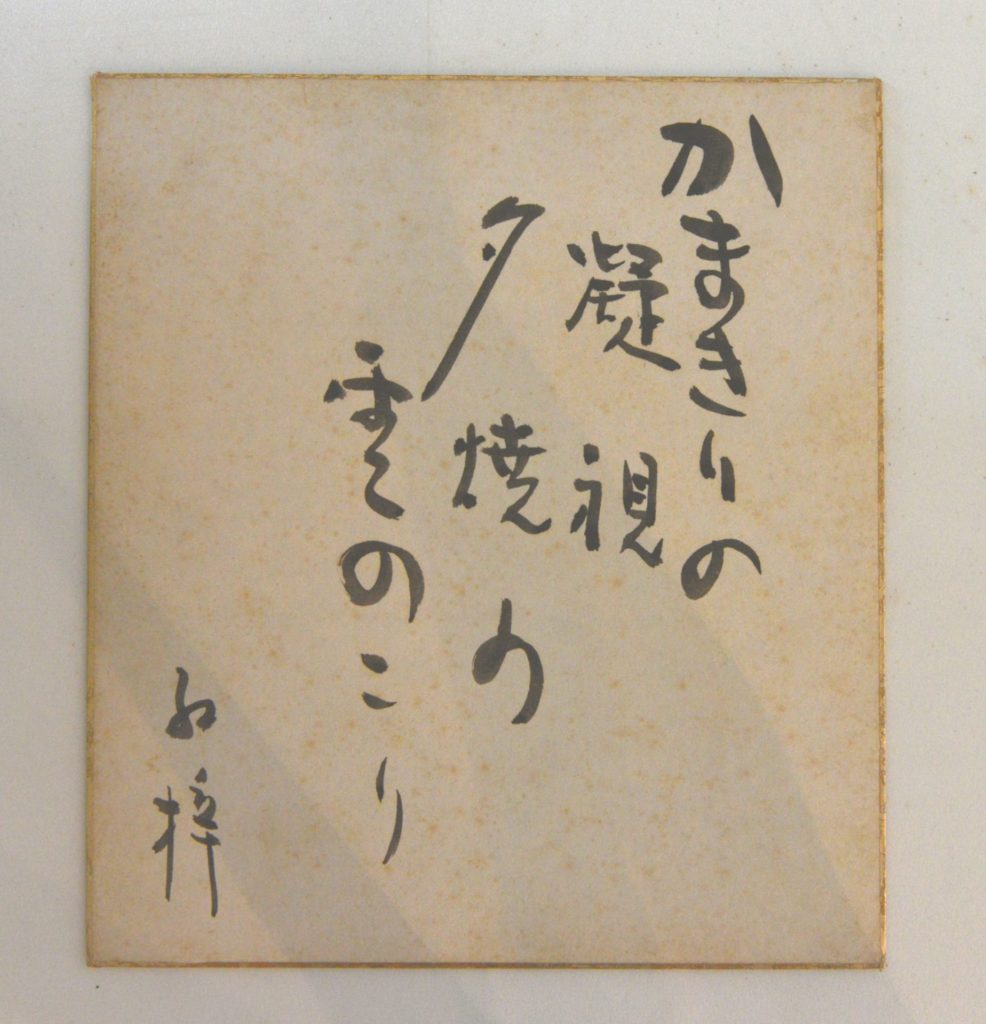 かまきりの
凝視
夕焼の
雲のこり
梓